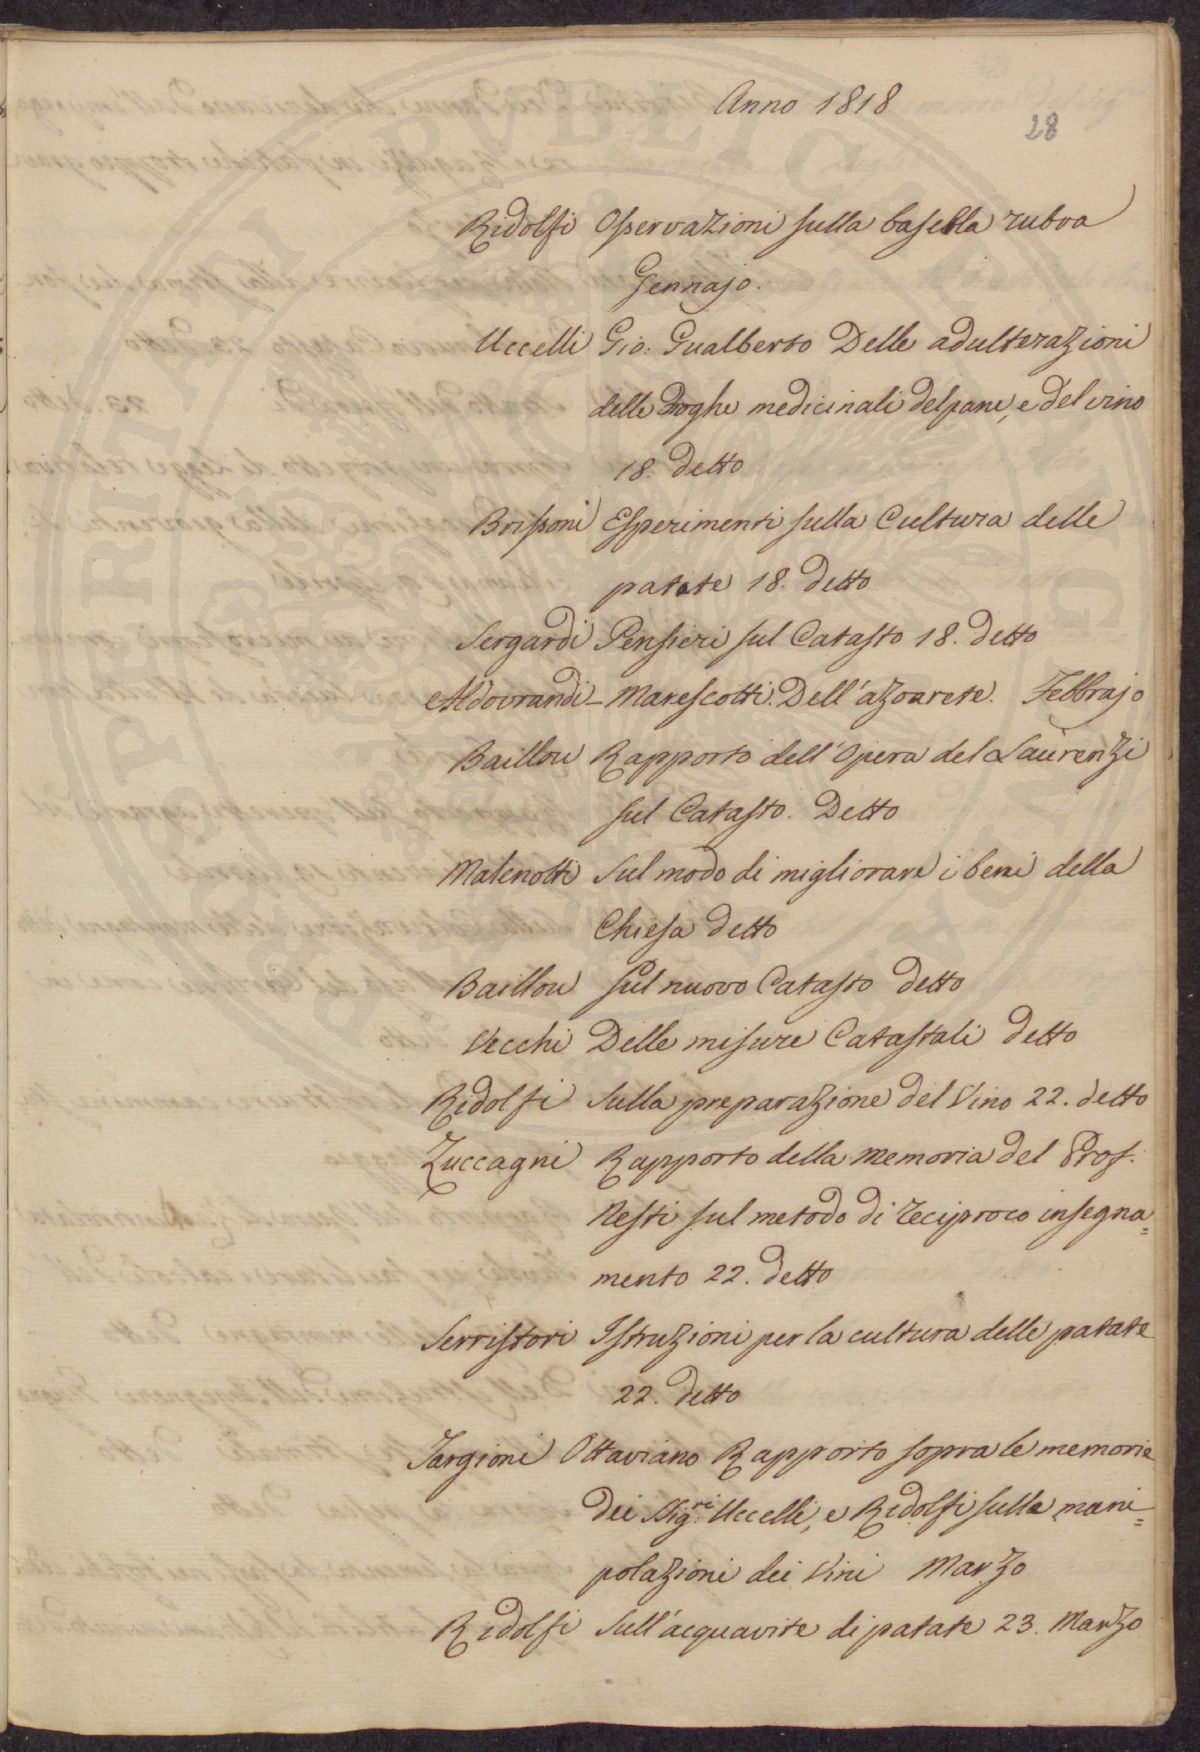 Anno 1818
28
Ridolfi Osservazioni sulla basella rubra
Gennajo.
Uccelli Gio: Gualberto Delle adulterazioni
delle Droghe medicinali del pane, e del vino
18. detto
Brissoni Esperimenti sulla Cultura delle
patate 18. detto
Sergardi Pensieri sul Catasto 18. detto
Aldovrandi - Marescotti. Dell'azoarete. Febbrajo
Baillou Rapporto dell'Opera del Laurenzi
sul Catasto. Detto
Malenotti Sul modo di migliorare i beni della
Chiesa detto
Baillou Sul nuovo Catasto detto
Vecchi Delle misure Catastali detto
Ridolfi Sulla preparazione del Vino 22. detto
Zuccagni Rapporto della memoria del Prof.
Nesti sul metodo di reciproco insegna=
mento 22. detto
Serristori Istruzioni per la cultura delle patate
22. detto
Targioni Ottaviano Rapporto sopra le memorie
dei Sig.ri Uccelli, e Ridolfi sulla mani=
polazioni dei Vini Marzo
Ridolfi Sull'acquavite di patate 23. Marzo